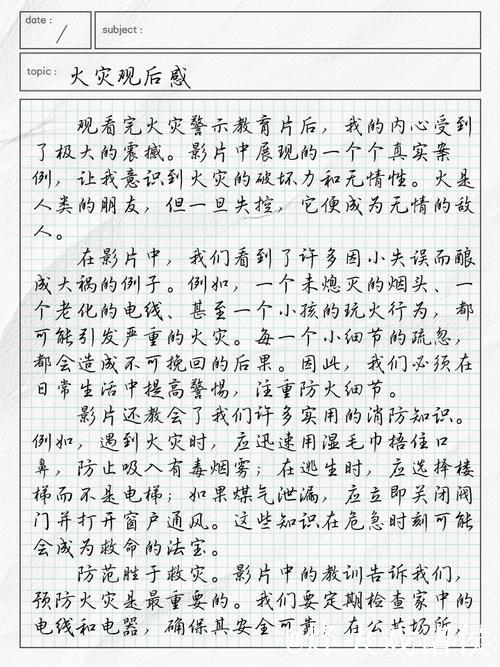 date :
subject :
topic : 火灾观后感
观看完火灾警示教育片后，我的内心受到
了极大的震撼。影片中展现的一个个真实案
例，让我意识到火灾的破坏力和无情性。火是
人类的朋友，但一旦失控，它便成为无情的敌
人。
在影片中，我们看到了许多因小失误而酿
成大祸的例子。例如，一个未熄灭的烟头、一
个老化的电线、甚至一个小孩的玩火行为，都
可能引发严重的火灾。每一个小细节的疏忽，
都会造成不可挽回的后果。因此，我们必须在
日常生活中提高警惕，注重防火细节。
影片还教会了我们许多实用的消防知识。
例如，遇到火灾时，应迅速用湿毛巾捂住口
鼻，防止吸入有毒烟雾；在逃生时，应选择楼
梯而不是电梯；如果煤气泄漏，应立即关闭阀
门并打开窗户通风。这些知识在危急时刻可能
会成为救命的法宝。
防范胜于救灾。影片中的教训告诉我们，
预防火灾是最重要的。我们要定期检查家中的
电线和电器，确保其安全可靠。在公共场所，